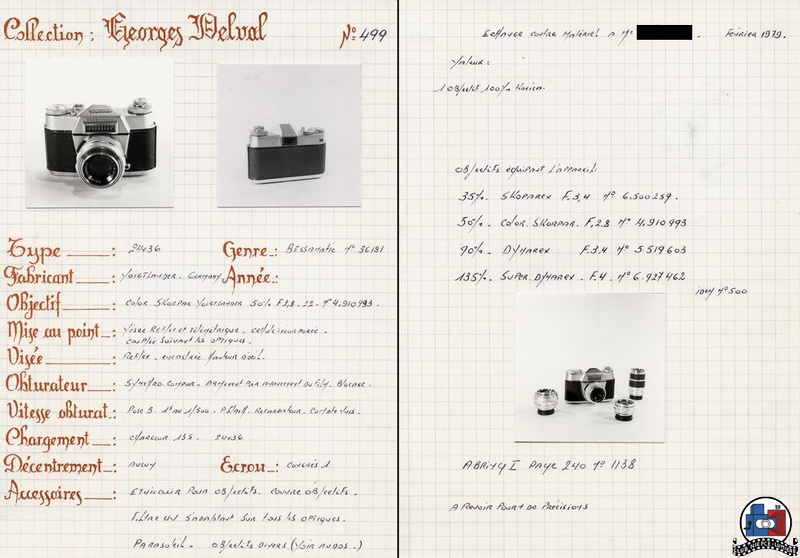 Collection : Georges Delval
N° 499
Type : 24x36
Genre : Bessamatic N° 36181
Fabricant : Voigtlander. Germany
Année :
Objectif : Color Skopar Voigtlander 50%. F 2,8 - 22. N° 4.910993.
Mise au point : Visée Reflex et Télémétrique. Cellule incorporée.
couplée suivant les optiques.
Visée : Reflex.
Obturateur : Synchro. Compur. Armement Par
Vitesse obturat. : Pose B. 1" au 1/500.
Chargement : chargeur 135. 24x36
Décentrement : aucun
Ecrou : congrès 1
Accessoires : Etui cuir Pour objectifs. couvre objectifs.
Filtre UV s'adaptant sur tous les optiques.
Parasoleil. objectifs divers (voir au dos.)
Echange contre Matériel à Mr
Février 1979.
Valeur :
1 objectif 100%
objectifs équipant l'appareil
35%. Skoparex F. 3,4 N° 6.500259.
50%. Color. Skopar. F. 2.8 N° 4.910993
90%. Dynarex F. 3.4 N° 5.519603
135%. Super. Dynarex. F. 4. N° 6.927462
idem N° 500
Abring I Page 240 N° 1138
A Revoir Pour de Précisions